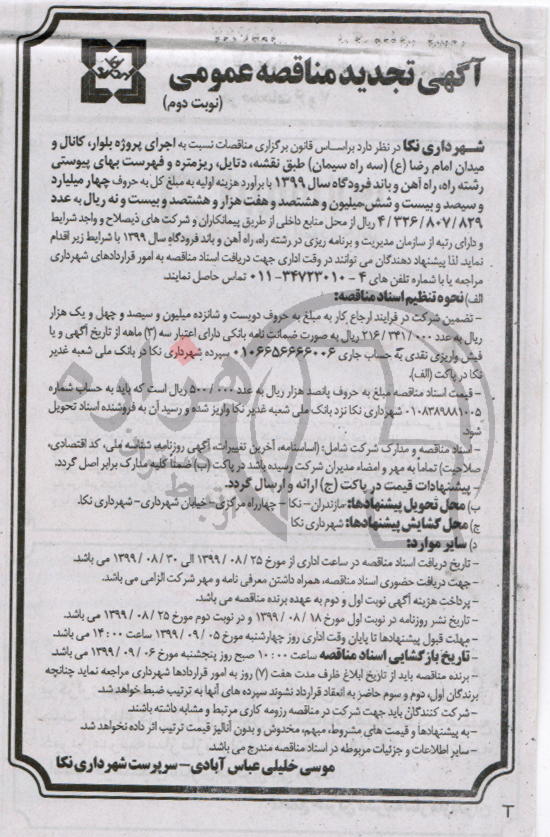 آگهی تجدید مناقصه عمومی
(نوبت دوم)
شهرداری نکا در نظر دارد براساس قانون برگزاری مناقصات نسبت به اجرای پروژه بلوار، کانال و
میدان امام رضا (ع) (سه راه سیمان) طبق نقشه، دتایل، ریزمتره و فهرست بهای پیوستی
رشته راه، راه آهن و باند فرودگاه سال ۱۳۹۹ با برآورد هزینه اولیه به مبلغ کل به حروف چهار میلیارد
و سیصد و بیست و شش میلیون و هشتصد و هفت هزار و هشتصد و بیست و نه ریال به عدد
۴/۳۲۶/۸۰۷/۸۲۹ ریال از محل منابع داخلی از طریق پیمانکاران و شرکت های ذیصلاح و واجد شرایط
و دارای رتبه از سازمان مدیریت و برنامه ریزی در رشته راه، راه آهن و باند فرودگاه سال ۱۳۹۹ با شرایط زیر اقدام
نماید. لذا پیشنهاد دهندگان می توانند در وقت اداری جهت دریافت اسناد مناقصه به امور قراردادهای شهرداری
مراجعه یا با شماره تلفن های ۴ - ۳۴۷۲۳۰۱۰ - ۰۱۱ تماس حاصل نمایند.
الف) نحوه تنظیم اسناد مناقصه:
- تضمین شرکت در فرایند ارجاع کار به مبلغ به حروف دویست و شانزده میلیون و سیصد و چهل و یک هزار
ریال به عدد ۲۱۶/۳۴۱/۰۰۰ ریال به صورت ضمانت نامه بانکی دارای اعتبار سه (۳) ماهه از تاریخ آگهی و یا
فیش واریزی نقدی به حساب جاری ۰۱۰۶۶۵۶۶۶۶۰۰۶ سپرده شهرداری نکا در بانک ملی شعبه غدیر
نکا در پاکت (الف).
- قیمت اسناد مناقصه مبلغ به حروف پانصد هزار ریال به عدد ۵۰۰/۰۰۰ ریال است که باید به حساب شماره
۰۱۰۸۳۸۹۸۸۱۰۰۵ شهرداری نکا نزد بانک ملی شعبه غدیر نکا واریز شده و رسید آن به فروشنده اسناد تحویل
شود.
- اسناد مناقصه و مدارک شرکت شامل: (اساسنامه، آخرین تغییرات، آگهی روزنامه، شناسه ملی، کد اقتصادی،
صلاحیت) تماما به مهر و امضاء مدیران شرکت رسیده باشد در پاکت (ب) ضمنا کلیه مدارک برابر اصل گردد.
- پیشنهادات قیمت در پاکت (ج) ارائه و ارسال گردد.
ب) محل تحویل پیشنهادها: مازندران - نکا - چهارراه مرکزی - خیابان شهرداری - شهرداری نکا.
ج) محل گشایش پیشنهادها: شهرداری نکا
د) سایر موارد:
- تاریخ دریافت اسناد مناقصه در ساعت اداری از مورخ ۲۵ / ۰۸ / ۱۳۹۹ الی ۳۰ / ۰۸ / ۱۳۹۹ می باشد.
- جهت دریافت حضوری اسناد مناقصه، همراه داشتن معرفی نامه و مهر شرکت الزامی می باشد.
- پرداخت هزینه آگهی نوبت اول و دوم به عهده برنده مناقصه می باشد.
- تاریخ نشر روزنامه در نوبت اول مورخ ۱۸ / ۰۸ / ۱۳۹۹ و در نوبت دوم مورخ ۲۵ / ۰۸ / ۱۳۹۹ می باشد.
- مهلت قبول پیشنهادها تا پایان وقت اداری روز چهارشنبه مورخ ۰۵ / ۰۹ / ۱۳۹۹ ساعت ۱۴:۰۰ می باشد.
- تاریخ بازگشایی اسناد مناقصه ساعت ۱۰:۰۰ صبح روز پنجشنبه مورخ ۰۶ / ۰۹ / ۱۳۹۹ می باشد.
- برنده مناقصه باید از تاریخ ابلاغ ظرف مدت هفت (۷) روز به امور قراردادها شهرداری مراجعه نماید چنانچه
برندگان اول، دوم و سوم حاضر به انعقاد قرارداد نشوند سپرده های آنها به ترتیب ضبط خواهد شد.
- شرکت کنندگان باید جهت شرکت در مناقصه رزومه کاری مرتبط و مشابه داشته باشند.
- به پیشنهادها و قیمت های مشروط، مبهم، مخدوش و بدون آنالیز قیمت ترتیب اثر داده نخواهد شد.
- سایر اطلاعات و جزئیات مربوطه در اسناد مناقصه مندرج می باشد.
موسی خلیلی عباس آبادی - سرپرست شهرداری نکا